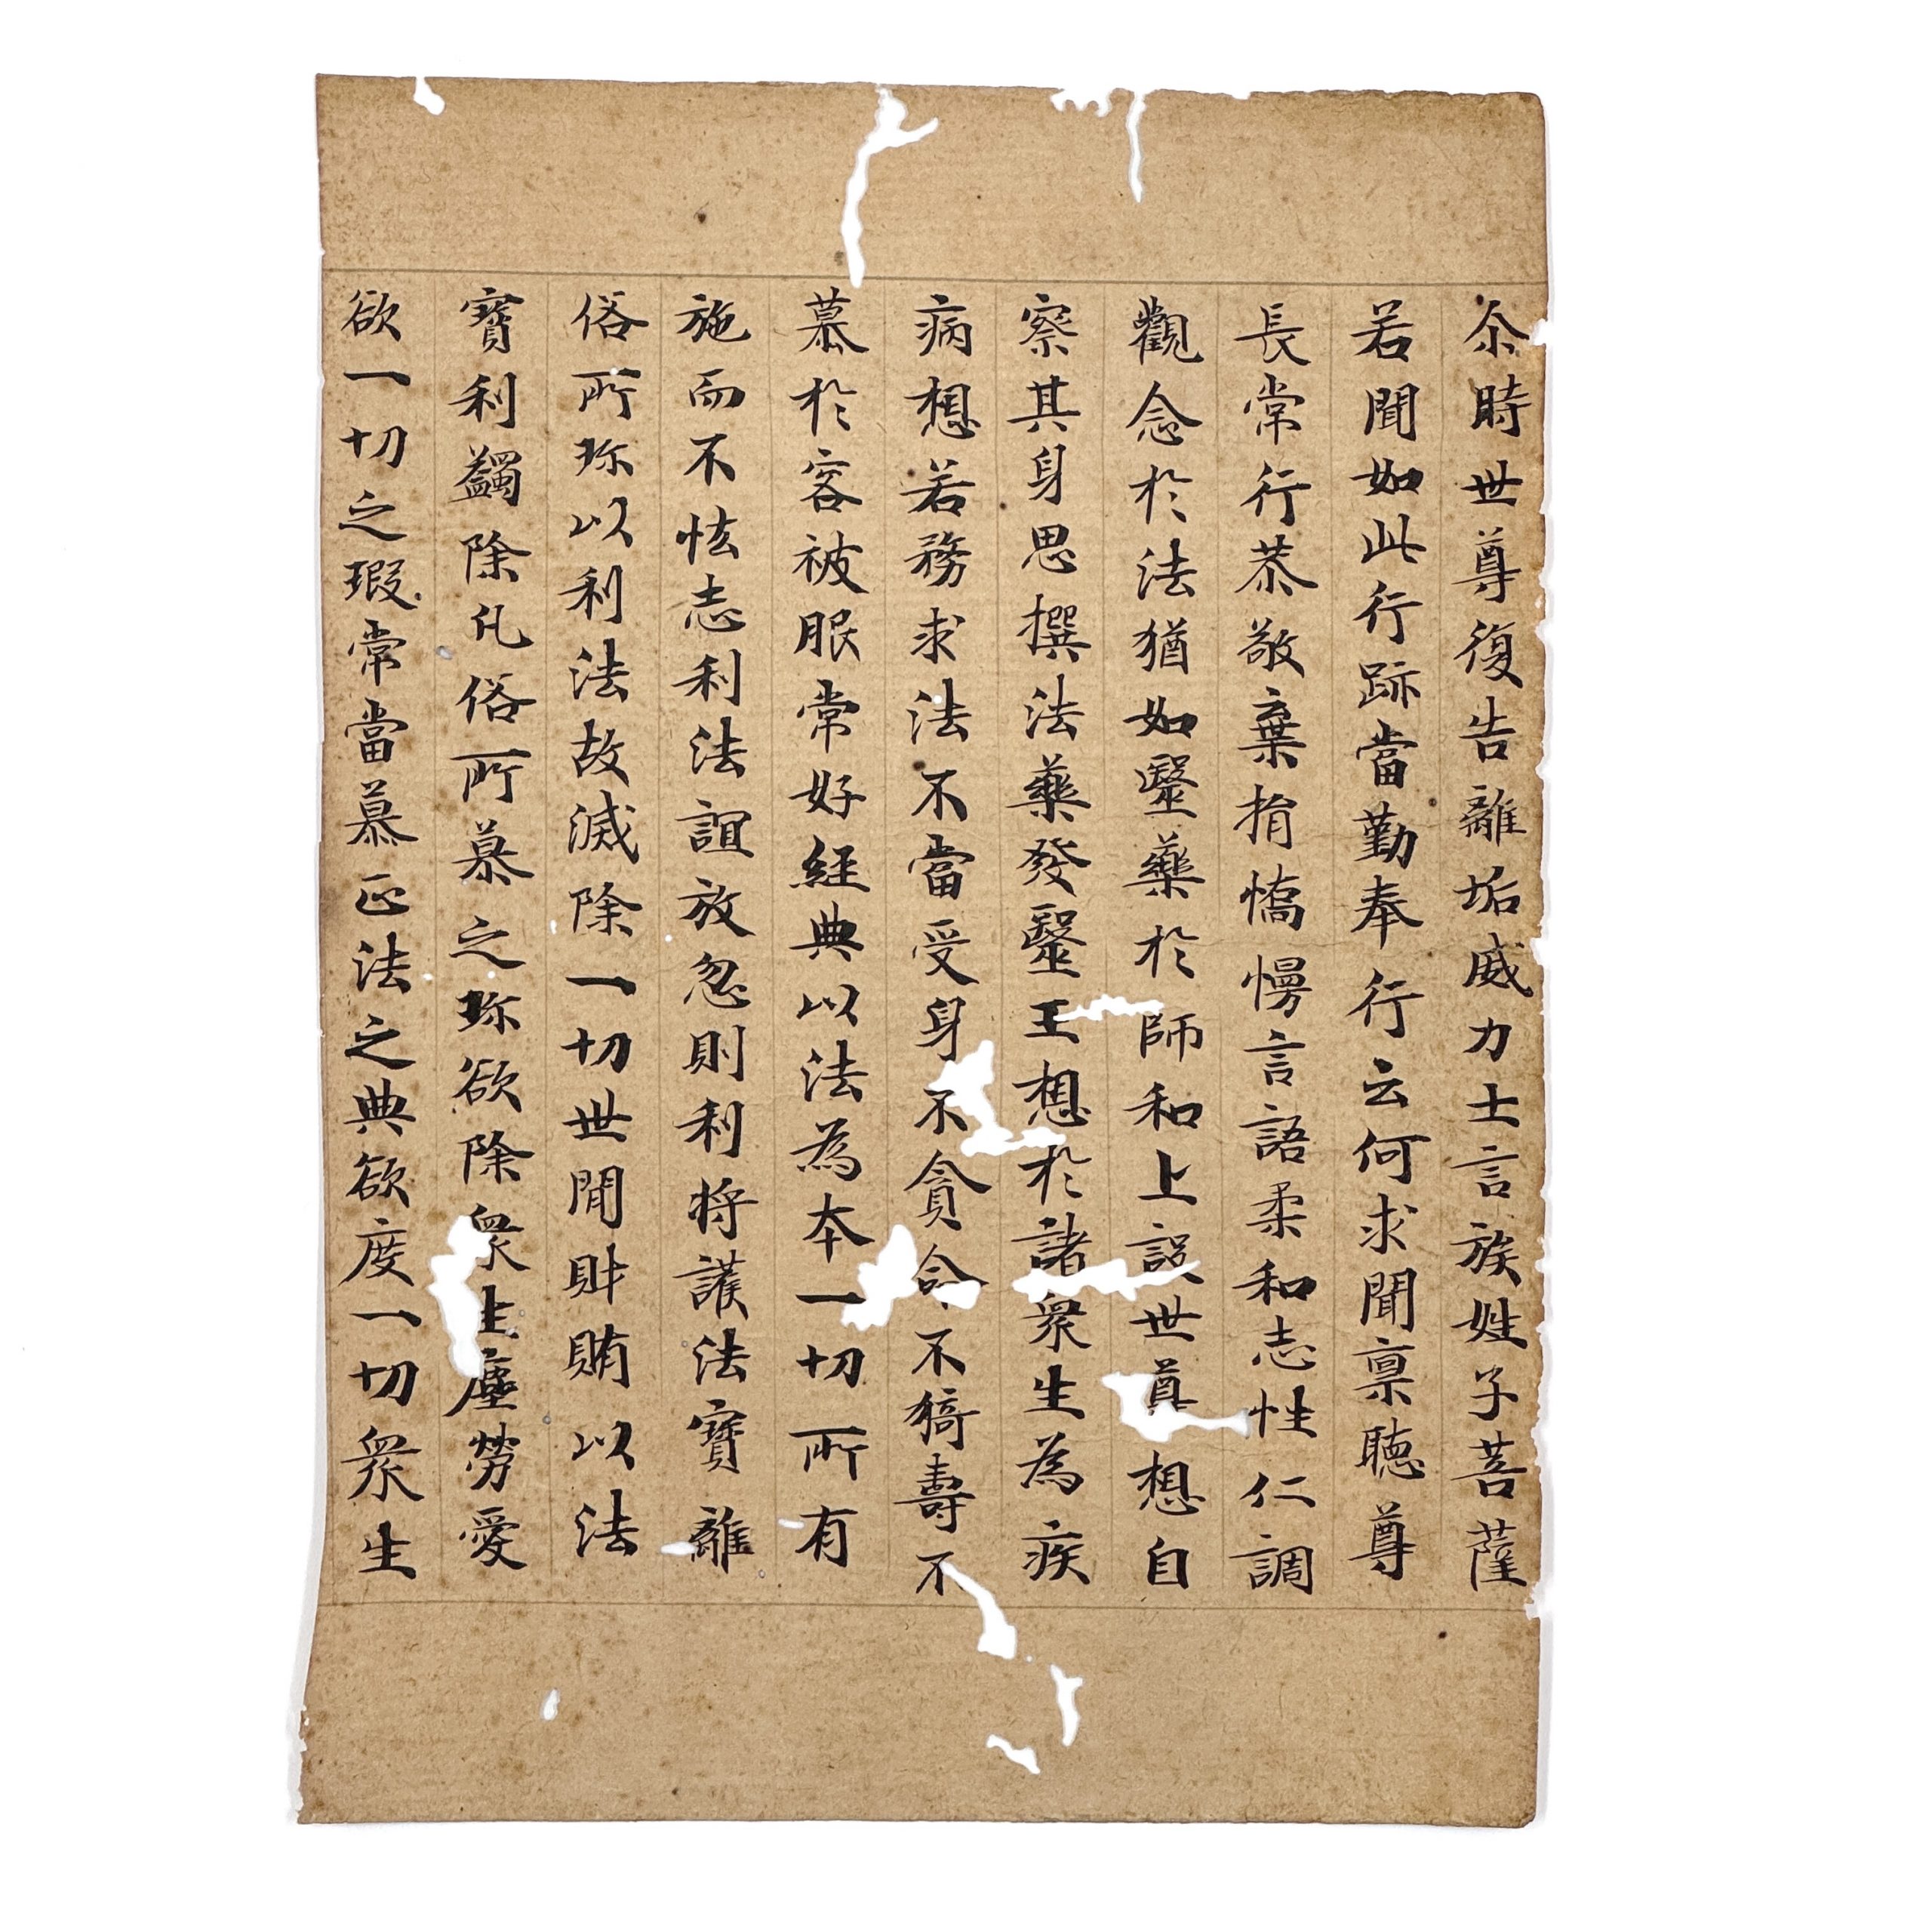 尒時世尊復告離垢威力士言族姓子菩薩
若聞如此行跡當勤奉行云何求聞禀聴尊
長常行恭敬棄捐憍慢言語柔和志性仁調
觀念於法猶如毉藥於師和上設世尊想自
察其身思撰法藥發毉王想於諸衆生為疾
病想若務求法不當受身不貪命不猗壽不
慕於客被服常好經典以法為本一切所有
施而不恡志利法誼放忽財利将護法寶離
俗所珎以利法故滅除一切世間財賄以法
寶利蠲除凢俗所慕之珎欲除衆生塵勞愛
欲一切之瑕常當慕正法之典欲度一切衆生